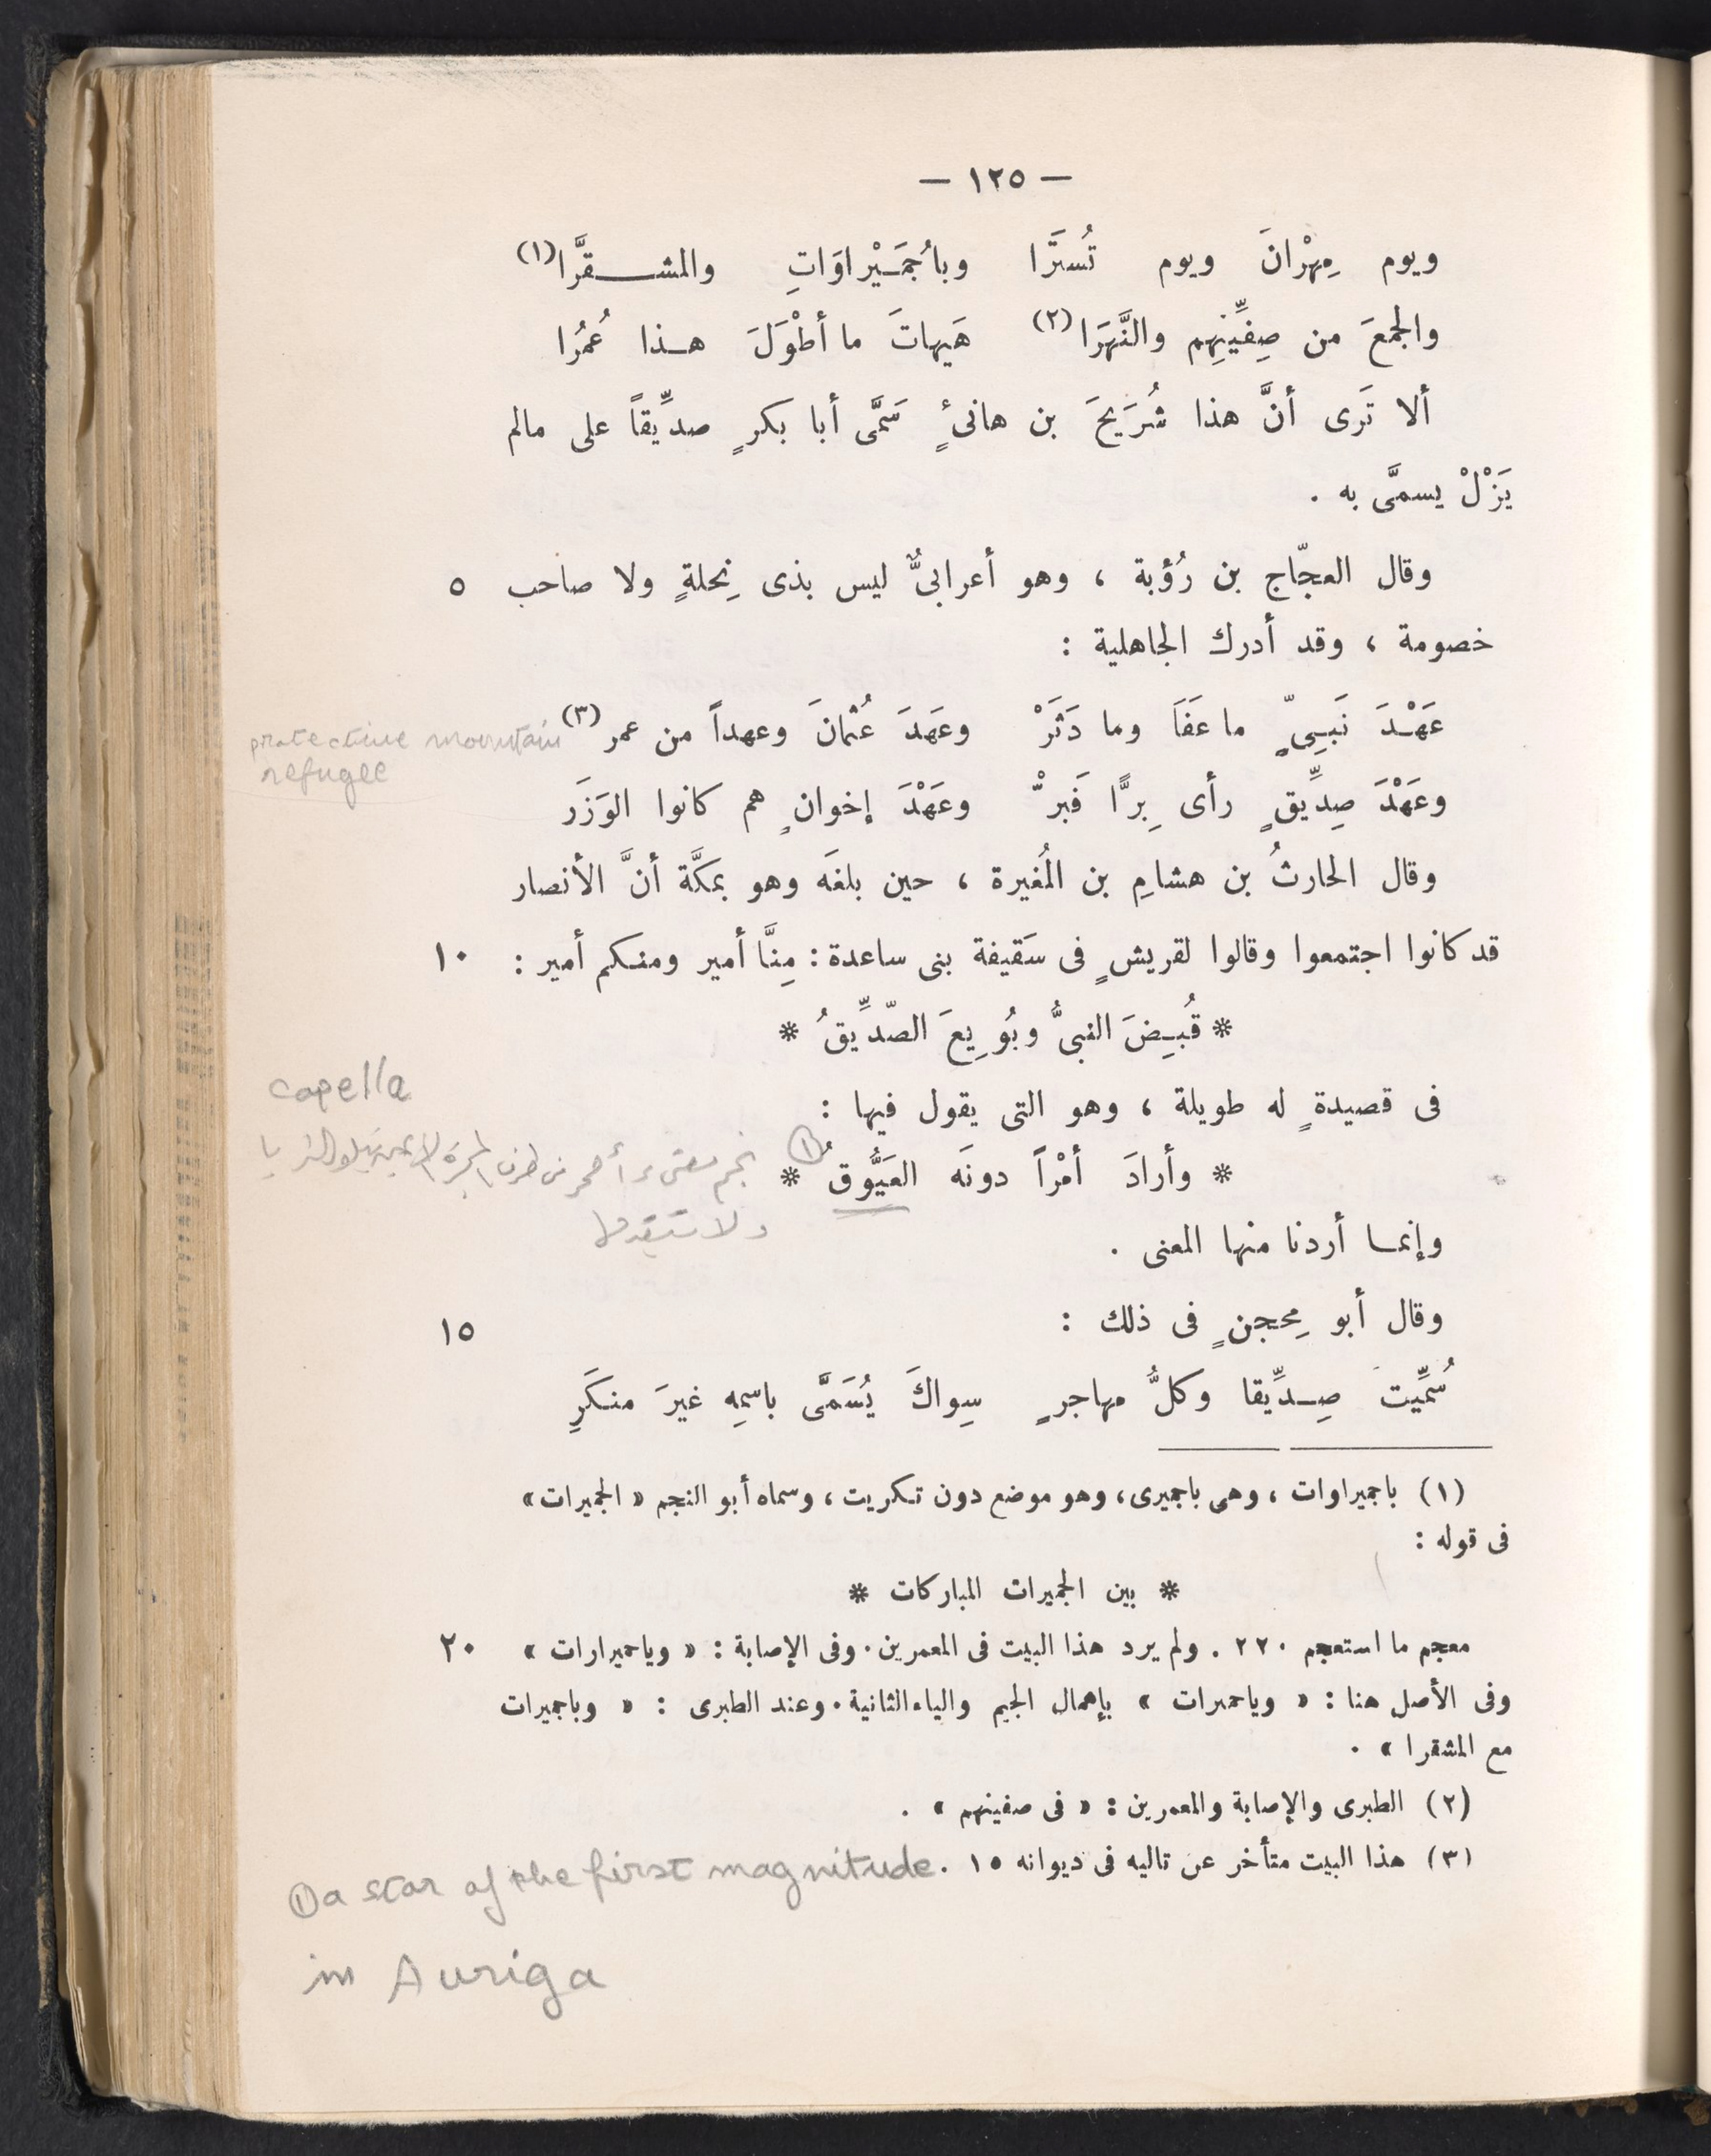 — ١٢٥ —
ويوم مِهْرانَ ويوم تُستَرَا وبا جُمَيْراوَاتِ والمشقَّرَا (١)
والجمعَ من صِفِّينِهم والنَّهَرَا (٢) هَيهاتَ ما أطْوَلَ هذا عُمُرا
ألا تَرى أنَّ هذا شُرَيحَ بن هانئٍ سَمَّى أبا بكرٍ صدِّيقاً على مالم
يَزْلْ يسمَّى به .
وقال العجّاج بن رُؤبة ، وهو أعرابىٌّ ليس بذى نِحلةٍ ولا صاحب ٥
خصومة ، وقد أدرك الجاهلية :
عَهْدَ نَبىٍّ ما عَفَا وما دَثَرْ وعَهَدَ عُثمانَ وعهداً من عمر (٣)
protective mountain
refugee
وعَهْدَ صِدِّيقٍ رأى بِرًّا فَبرّْ وعَهْدَ إخوانٍ هم كانوا الوَزَر
وقال الحارثُ بن هشامِ بن المُغيرة ، حين بلغَه وهو بمكَّة أنَّ الأنصار
قد كانوا اجتمعوا وقالوا لقريشٍ فى سَقيفة بنى ساعدة : مِنَّا أمير ومنكم أمير : ١٠
* قُبِضَ النبىُّ وبُويِعَ الصّدِّيقُ *
capella
فى قصيدةٍ له طويلة ، وهو التى يقول فيها :
* وأرادَ أمْراً دونَه العَيُّوقُ * (١) نجم مضىء أحمر فى طرف المجرة الأيمن يتلو الثريا
ولا يتقدمها
وإنما أردنا منها المعنى .
وقال أبو مِحجنٍ فى ذلك : ١٥
سُمِّيتَ صِدِّيقا وكلُّ مهاجرٍ سِواكَ يُسَمَّى باسمِه غيرَ منكَرِ
(١) باجميراوات ، وهى باجميرى ، وهو موضع دون تكريت ، وسماه أبو النجم « الجميرات »
فى قوله :
* بين الجميرات المباركات *
معجم ما استعجم ٢٢٠ . ولم يرد هذا البيت فى المعمرين . وفى الإصابة : « وياحميرارات » ٢٠
وفى الأصل هنا : « وياحمرات » بإهمال الجيم والياء الثانية . وعند الطبرى : « وباجميرات
مع المشقرا » .
(٢) الطبرى والإصابة والمعمرين : « فى صفينهم » .
(٣) هذا البيت متأخر عن تاليه فى ديوانه ١٥ .
① a star of the first magnitude
in Auriga